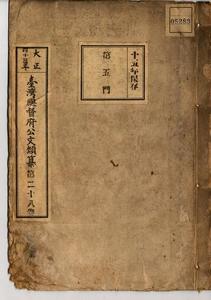 05283
十五年保存
第五門
大正
臺灣總督府公文類纂第二十八卷